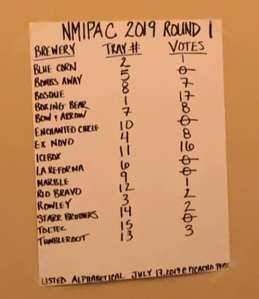 NMIPAC 2019 ROUND 1
BREWERY TRAY # VOTES
BLUE CORN 2 1
BOMBS AWAY 5 0
BOSQUE 8 7
BOXING BEAR 1 17
BOW & ARROW 7 8
ENCHANTED CIRCLE 10 0
EX NOVO 4 8
ICEBOX 11 16
LA REFORMA 6 0
MARBLE 9 0
RIO BRAVO 12 1
ROWLEY 3 2
STARR BROTHERS 14 2
TOLTEC 15 0
TUMBLEROOT 13 3
LISTED ALPHABETICAL JULY 13, 2019 @ PICACHO